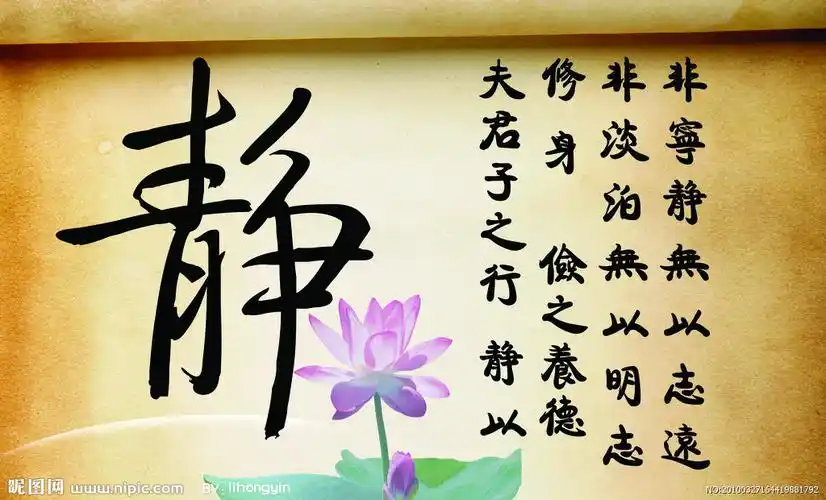 静
夫君子之行 静以
修身 儉之養德
非淡泊無以明志
非寧静無以志遠
昵图网 www.nipic.com BY: lihongyin
NO:20100327154419881792